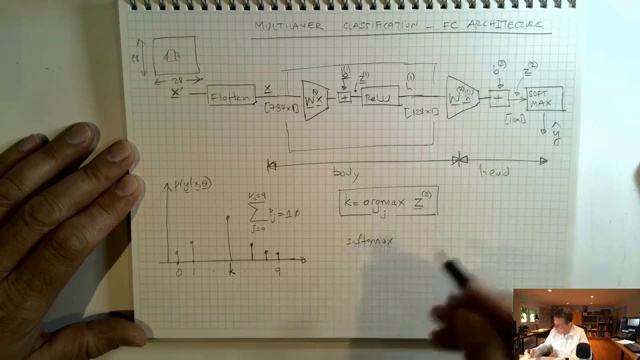 MULTILAYER CLASSIFICATION - FC ARCHITECTURE
28
28
x'
Flatten
x
[784x1]
W(1) x
b(1)
+
z(1)
ReLU
h(1)
[128x1]
W(2) h(1)
b(2)
+
z(2)
[10x1]
SOFT
MAX
ŷ
body
head
p(y|x,θ)
K=9
Σ Pj = 1.0
j=0
0 1 . k 9
K = argmax z(2)
j
softmax